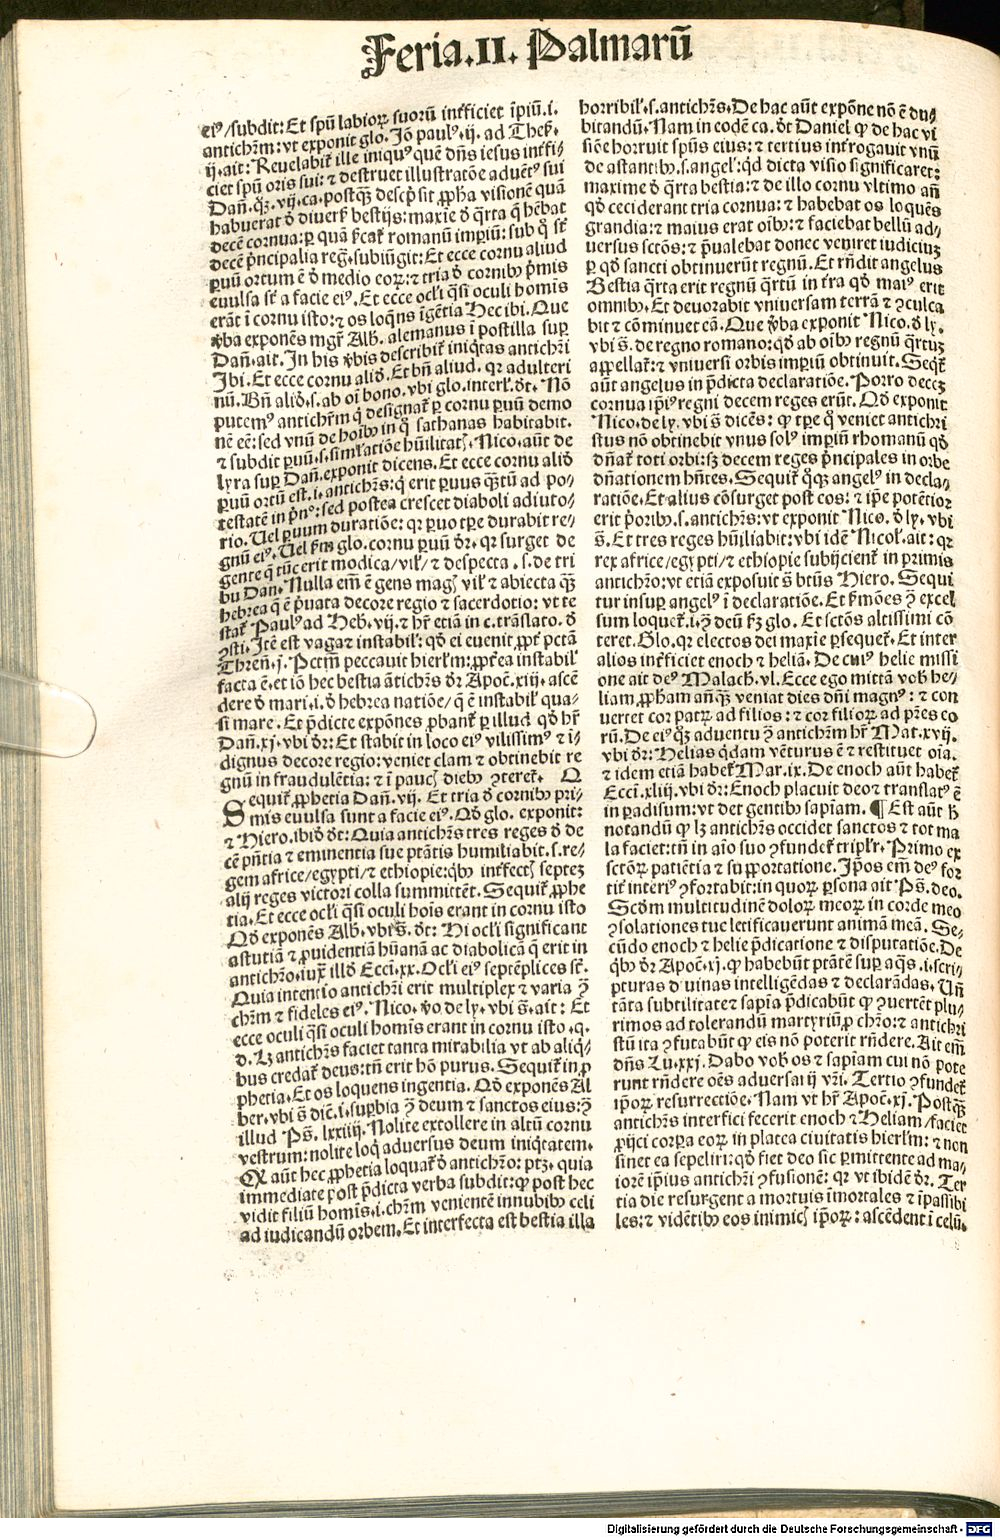 Feria.II. Palmarū
eiꝰ/subdit: Et spū labioꝝ suorū inťficiet īpiū.i.
antichr̄m: vt exponit glo. Jō paulꝰ.ij. ad Thes̄.
ij.ait: Reuelabit̄ ille iniquꝰ quē dn̄s iesus intfi-
ciet spū oris sui: ⁊ destruet illustratōe aduētꝰ sui
Dan̄.q̄ꝫ.vij.ca.postq̄ꝫ descp̄sit ꝓph̄a visionē quā
habuerat ď diuers̄ bestijs: maxie ď q̄rta q̄ hēbat
decē cornua: ꝑ quā s̄cat̄ romanū imꝑiū: sub q̊ st̄
decē p̄ncipalia reḡ. subiūgit: Et ecce cornu aliud
ꝑuū ortum ē ď medio eoꝝ: ⁊ tria ď cornibꝰ p̄mis
euulsa st̄ a facie eiꝰ. Et ecce ocl̄i q̄si oculi homīs
erāt ī cornu isto: ⁊ os loqn̄s īgētia Hec ibi. Que
v̄ba exponēs mgr̄ Alb̄. alemanus ī postilla suꝑ
Dan̄. ait. In his v̄bis describit̄ iniqtas antichr̄i
Ibi. Et ecce cornu aliď. Et bn̄ aliud. qꝛ adulteri
nū. Bn̄ aliď.s. ab oī bono. vbi glo. interl̄. ďt. Nō
putemꝰ antichr̄m q̄ designat̄ ꝑ cornu ꝑuū demo
nē eē: sed vnū de hoībꝰ in q̊ sathanas habitabit.
⁊ subdit ꝑuū.s. simlatiōe hūilitaꝭ. Nico. aūt de
lyra suꝑ Dan̄. exponit dicens. Et ecce cornu aliď
ꝑuū ortū est.i. antichr̄s: q̄ erit ꝑuus q̄ꝫtū ad po-
testatē in p̄nº: sed postea crescet diaboli adiuto-
rio. Uel ꝑuum duratiōe: qꝛ ꝑuo tꝑe durabit re-
gnū eiꝰ. Uel s̄m glo. cornu ꝑuū ďr. qꝛ surget de
gente q̄ tūc erit modica/vil̄/ ⁊ despecta.s. de tri
bu Dan. Nulla em̄ ē gens magꝭ vil̄ ⁊ abiecta q̄ꝫ
hebrea q̄ ē p̄uata decore regio ⁊ sacerdotio: vt te
stat̄ Paulꝰ ad Heb̄.vij. ⁊ hr̄ etiā in c. trāslato. ď
ꝯsti. Itē est vaga ⁊ instabil̄: qď ei euenit ꝓpt̄ pctā
Thren̄.j. Pctm̄ peccauit hierl̄m: ꝓpt̄ea instabil̄
facta ē. et iō hec bestia āntichr̄s ďr Apoc̄.xiij. ascē
dere ď mari.i. ď hebrea natiōe/ q̄ ē instabil̄ qua-
si mare. Et p̄dicte expōnes ꝓbant̄ ꝑ illud qď hr̄
Dan̄.xj. vbi ďr: Et stabit in loco eiꝰ vilissimꝰ ⁊ ī-
dignus decore regio: veniet clam ⁊ obtinebit re
gnū in fraudulētia: ⁊ ī paucꝭ diebꝰ ꝯteret̄. Q
Sequit̄ ꝓphetia Dan̄. vij. Et tria ď cornibꝰ pri-
mis euulsa sunt a facie eiꝰ. Qď glo. exponit:
⁊ Hiero. ibiď ďt: Quia antichr̄s tres reges ď de
cē pn̄tia ⁊ eminentia sue ptātis humiliabit.s. re-
gem africe/egypti/ ⁊ ethiopie: q̊bꝰ intfectꝭ septeꝫ
alij reges victori colla summittēt. Sequit̄ ꝓphe
tia. Et ecce ocl̄i q̄si oculi hoīs erant in cornu isto
Qď exponēs Alb̄. vbi s̄. ďt: Hi ocl̄i significant
astutiā ⁊ ꝓuidentiā hūanā ac diabolicā q̄ erit in
antichr̄o. iux̄ illď Ecci.xx. Ocl̄i eiꝰ septēplices st̄.
Quia intentio antichr̄i erit multiplex ⁊ varia ꝯ̄
chr̄m ⁊ fideles eiꝰ. Nico. v̊o de ly. vbi s̄. ait: Et
ecce oculi q̄si oculi homīs erant in cornu isto.q.
d. lꝫ antichr̄s faciet tanta mirabilia vt ab aliq̊-
bus credat̄ deus: tn̄ erit hō purus. Sequit̄ in ꝓ
phetia. Et os loquens ingentia. Qď exponēs Al
ber. vbi s̄ dic̄.i. suꝑbia ꝯ̄ deum ⁊ sanctos eius: ꝯ̄
illud Ps̄. lxxiiij. Nolite extollere in altū cornu
vestrum: nolite loq̊ aduersus deum iniqtatem.
Qꝙ aūt hec ꝓphetia loquat̄ ď antichr̄o: ptꝫ. quia
immediate post p̄dicta verba subdit: ꝙ post hec
vidit filiū homīs.i. chr̄m venientē in nubibꝰ celi
ad iudicandū orbem. Et interfecta est bestia illa
horribil̄.s. antichr̄s. De hac aūt expōne nō ē du-
bitandū. Nam in eodē ca. ďt Daniel ꝙ de hac vi
siōe horruit spūs eius: ⁊ tertius intrrogauit vnū
de astantibꝰ.s. angel̄: qd dicta visio significaret:
maxime ď q̄rta bestia: ⁊ de illo cornu vltimo añ
qď ceciderant tria cornua: ⁊ habebat os loquēs
grandia: ⁊ maius erat oībꝰ: ⁊ faciebat bellū ad-
uersus sctōs: ⁊ p̄ualebat donec veniret iudiciuꝫ
ꝑ qď sancti obtinuerūt regnū. Et rn̄dit angelus
Bestia q̄rta erit regnū q̄rtū in t̄ra qď maiꝰ erit
omnibꝰ. Et deuorabit vniuersam terrā ⁊ ꝯculca
bit ⁊ cōminuet eā. Que v̄ba exponit Nico. ď ly.
vbi s̄. de regno romano: qď ab oībꝰ regnū q̄rtuꝫ
appellat̄: ⁊ vniuersi orbis imꝑiū obtinuit. Seqt̄
aūt angelus in p̄dicta declaratiōe. Porro deceꝫ
cornua ip̄iꝰ regni decem reges erūt. Qď exponit
Nico. de ly. vbi s̄ dicēs: ꝙ tꝑe q̊ veniet antichri
stus nō obtinebit vnus solꝰ imꝑiū rhomanū qď
dn̄at̄ toti orbi: sꝫ decem reges p̄ncipales in orbe
dn̄ationem hn̄tes. Sequit̄ q̊qꝫ angelꝰ in decla-
ratiōe. Et alius cōsurget post eos: ⁊ ip̄e potētior
erit p̄oribꝰ.s. antichr̄s: vt exponit Nico. ď ly. vbi
s̄. Et tres reges hūiliabit: vbi idē Nicol̄. ait: qꝛ
rex africe/egypti/ ⁊ ethiopie subijcient̄ in primis
antichr̄o: vt etiā exposuit s̄ btūs Hiero. Sequi
tur insuꝑ angelꝰ ī declaratiōe. Et s̄mōes ꝯ̄ excel
sum loquet̄.i. ꝯ̄ deū s̄ꝫ glo. Et sctōs altissimi cō
teret. Glo. qꝛ electos dei maxie ꝑsequet̄. Et inter
alios intficiet enoch ⁊ heliā. De cuiꝰ helie missi
one ait deꝰ Malach̄. vl. Ecce ego mittā vob̄ he-
liam ꝓph̄am anq̄ꝫ veniat dies dn̄i magnꝰ: ⁊ con
uertet cor patꝝ ad filios: ⁊ cor filioꝝ ad pr̄es eo
rū. De eiꝰ q̄ꝫ aduentu ꝯ̄ antichr̄m hr̄ Mat.xvij.
vbi ďr: Helias q̄dam vēturus ē ⁊ restituet oīa.
⁊ idem etiā habet̄ Mar.ix. De enoch aūt habet̄
Ecci.xliiij. vbi ďr: Enoch placuit deo ⁊ translatꝰ ē
in ꝑadisum: vt det gentibꝰ sapīam. ¶ Est aūt h̄
notandū ꝙ lꝫ antichr̄s occidet sanctos ⁊ tot ma
la faciet: tn̄ in aīo suo ꝯfundet̄ tripl̄r. Primo ex
sctōꝝ patiētia ⁊ supportatione. Ip̄os em̄ deꝰ for
tit̄ interiꝰ ꝯfortabit: in quoꝝ ꝑsona ait Ps̄. deo.
Scďm multitudinē doloꝝ meoꝝ in corde meo
ꝯsolationes tue letificauerunt animā meā. Se-
cūdo enoch ⁊ helie p̄dicatione ⁊ disputatiōe. De
q̊bꝰ ďr Apoc̄.xj. ꝙ habebūt ptātē suꝑ aq̄s.i. scri-
pturas diuinas intelligēdas ⁊ declarādas. Un̄
tāta subtilitate ⁊ sapīa p̄dicabūt ꝙ ꝯuertēt plu-
rimos ad tolerandū martyriū ꝓ chr̄o: ⁊ antichri
stū ita ꝯfutabūt ꝙ eis nō poterit rn̄dere. Ait em̄
dn̄s Lu.xxj. Dabo vob̄ os ⁊ sapīam cui nō pote
runt rn̄dere oēs aduersarij vr̄i. Tertio ꝯfundet̄
ip̄oꝝ resurrectiōe. Nam vt hr̄ Apoc̄.xj. Postq̄ꝫ
antichr̄s interfici fecerit enoch ⁊ Heliam/faciet
ꝓijci corꝑa eoꝝ in platea ciuitatis hierl̄m: ⁊ non
sinet ea sepeliri: qď fiet deo sic ꝑmittente ad ma-
iorē ip̄ius antichr̄i ꝯfusionē: qꝛ vt ibidē ďr. Ter
tia die resurgent a mortuis īmortales ⁊ īpassibi
les: ⁊ vidētibꝰ eos inimicꝭ ip̄oꝝ: ascēdent ī celū.
Digitalisierung gefördert durch die Deutsche Forschungsgemeinschaft - DFG